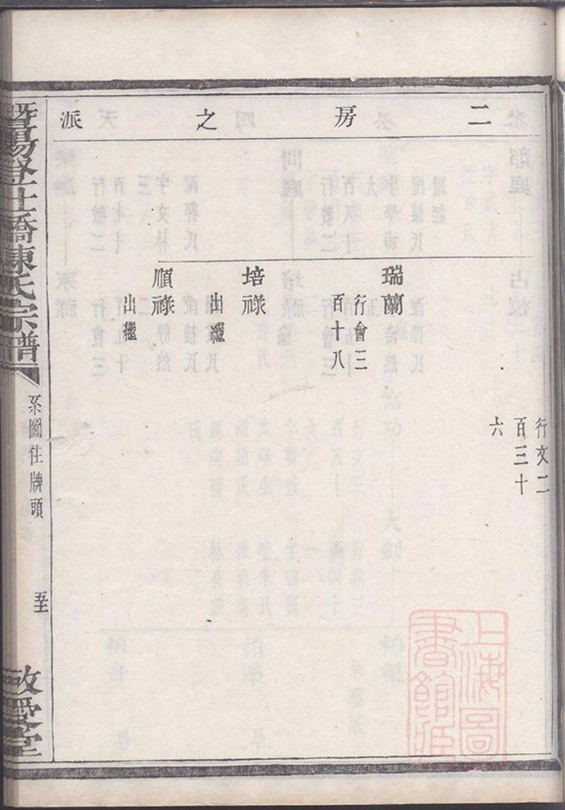 二房之派
行文二
百三十
六
瑞蘭
行會三
百十八
培祿
出繼
順祿
出繼
暨陽登仕橋陳氏宗譜
系圖住牌頭
敬愛堂
上海圖
書館藏